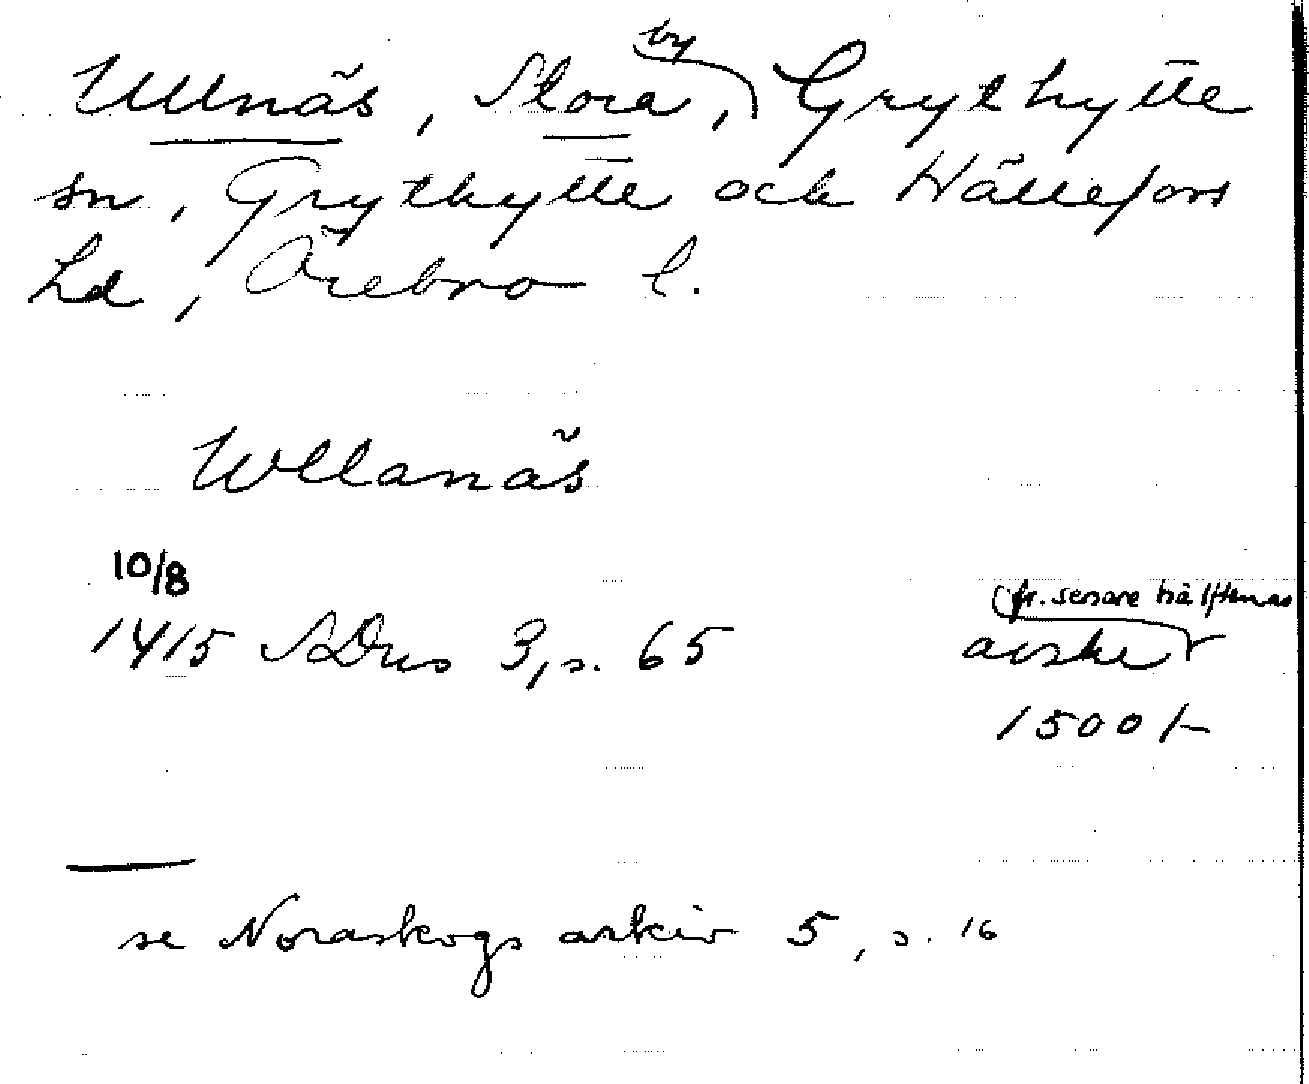 Ullnäs, Stora, by Grythytte
sn, Grythytte och Hällefors
Ld, Örebro l.
Wllanäs
10/8
1415 SDns 3, s. 65
fr. senare hälften av
avskr
1500 t
se Noraskogs arkiv 5, s. 16